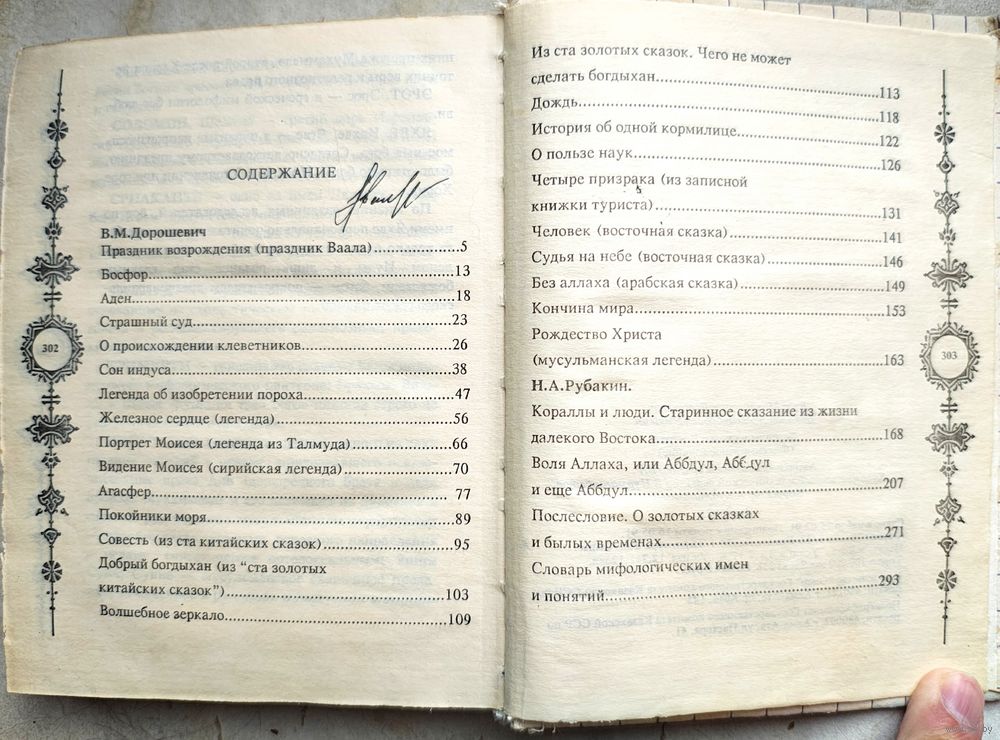 СОДЕРЖАНИЕ
В.М.Дорошевич
Праздник возрождения (праздник Ваала)....................5
Босфор....................13
Аден....................18
Страшный суд....................23
О происхождении клеветников....................26
Сон индуса....................38
Легенда об изобретении пороха....................47
Железное сердце (легенда)....................56
Портрет Моисея (легенда из Талмуда)....................66
Видение Моисея (сирийская легенда)....................70
Агасфер.................... 77
Покойники моря....................89
Совесть (из ста китайских сказок)....................95
Добрый богдыхан (из “ста золотых
китайских сказок”)....................103
Волшебное зеркало....................109
302
Из ста золотых сказок. Чего не может
сделать богдыхан....................113
Дождь....................118
История об одной кормилице....................122
О пользе наук....................126
Четыре призрака (из записной
книжки туриста)....................131
Человек (восточная сказка)....................141
Судья на небе (восточная сказка)....................146
Без аллаха (арабская сказка)....................149
Кончина мира....................153
Рождество Христа
(мусульманская легенда)....................163
Н.А.Рубакин.
Кораллы и люди. Старинное сказание из жизни
далекого Востока....................168
Воля Аллаха, или Аббдул, Аббдул
и еще Аббдул....................207
Послесловие. О золотых сказках
и былых временах....................271
Словарь мифологических имен
и понятий....................293
303